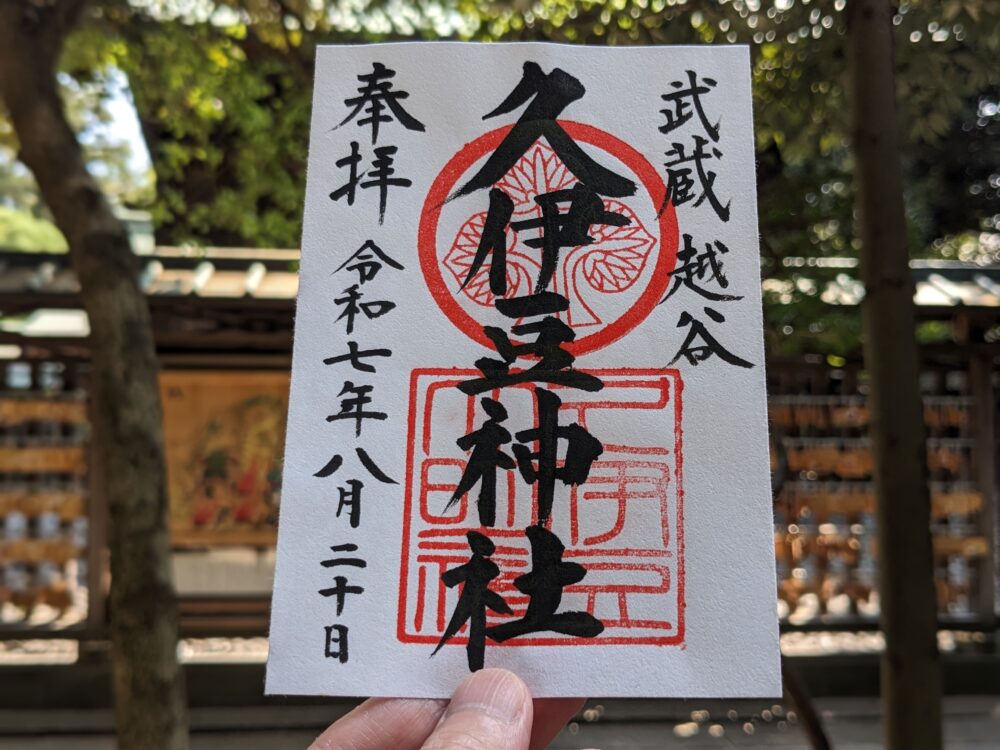 武蔵 越谷
久伊豆神社
奉拝 令和七年八月二十日